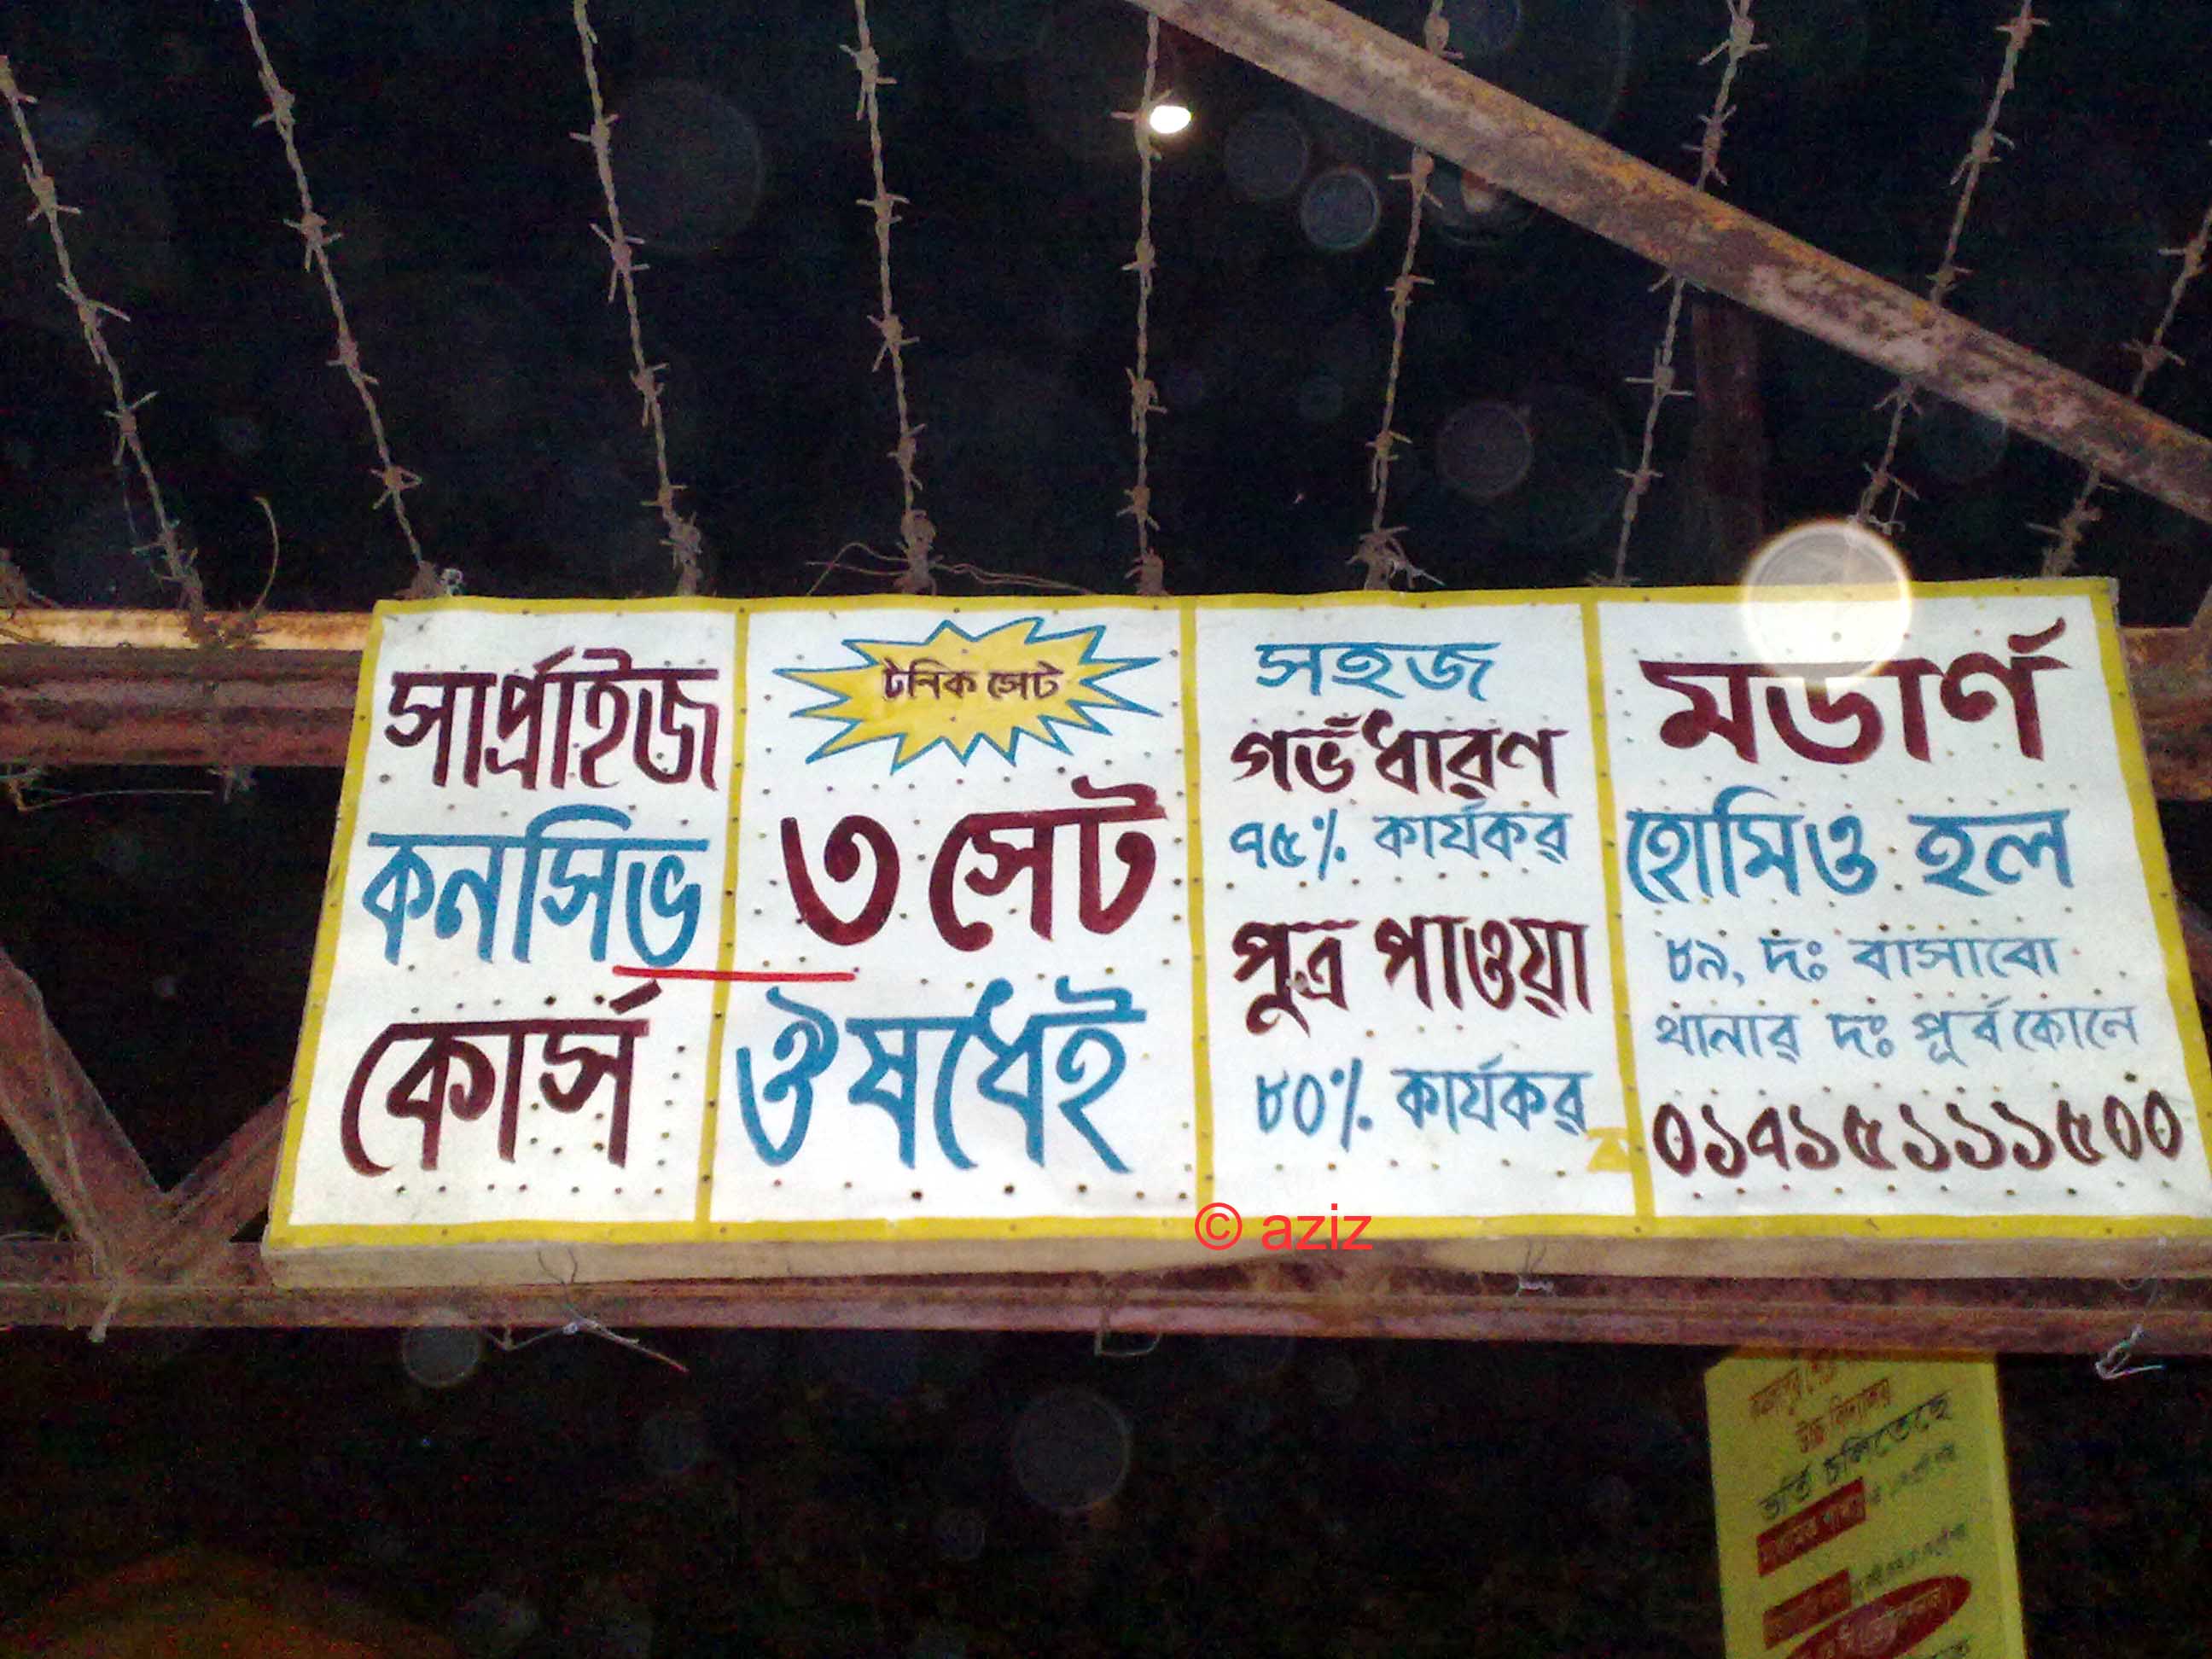 সার্প্রাইজ
কনসিভ
কোর্স
টনিক সেট
৩ সেট
ঔষধেই
সহজ
গর্ভধারণ
৭৫% কার্যকর
পুত্র পাওয়া
৮০% কার্যকর
মডার্ণ
হোমিও হল
৮৯, দঃ বাসাবো
থানার দঃ পূর্ব কোনে
০১৭১৫১১১৫০০
© aziz
উচ্চ বিদ্যালয়
ভর্তি চলিতেছে